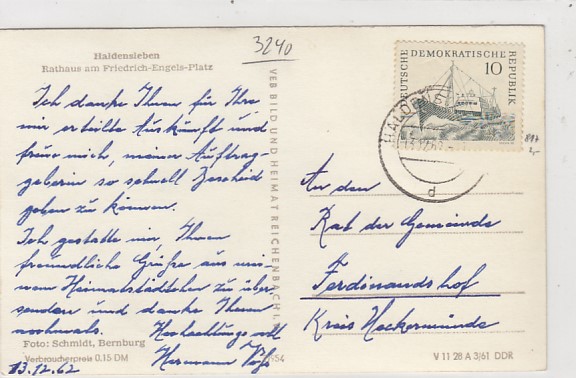 3240
Haldensleben
Rathaus am Friedrich-Engels-Platz
Ich danke Ihnen für Ihre
mir erteilte Auskünft und
freue mich, meiner Auftrag-
geberin so schnell Bescheid
geben zu können.
Ich gestatte mir, Ihnen
freundliche Grüße aus mei-
nem Heimatstädtchen zu über-
senden und danke Ihnen
nochmals. Hochachtungsvoll
Hermann
Foto: Schmidt, Bernburg
Verbraucherpreis 0,15 DM
13.12.62
VEB BILD UND HEIMAT REICHENBACH I. V.
DEUTSCHE DEMOKRATISCHE REPUBLIK
10
HALDENS
13.12.62
d
An den
Rat der Gemeinde
Ferdinandshof
Kreis Ueckermünde
V 11 28 A 3/61 DDR